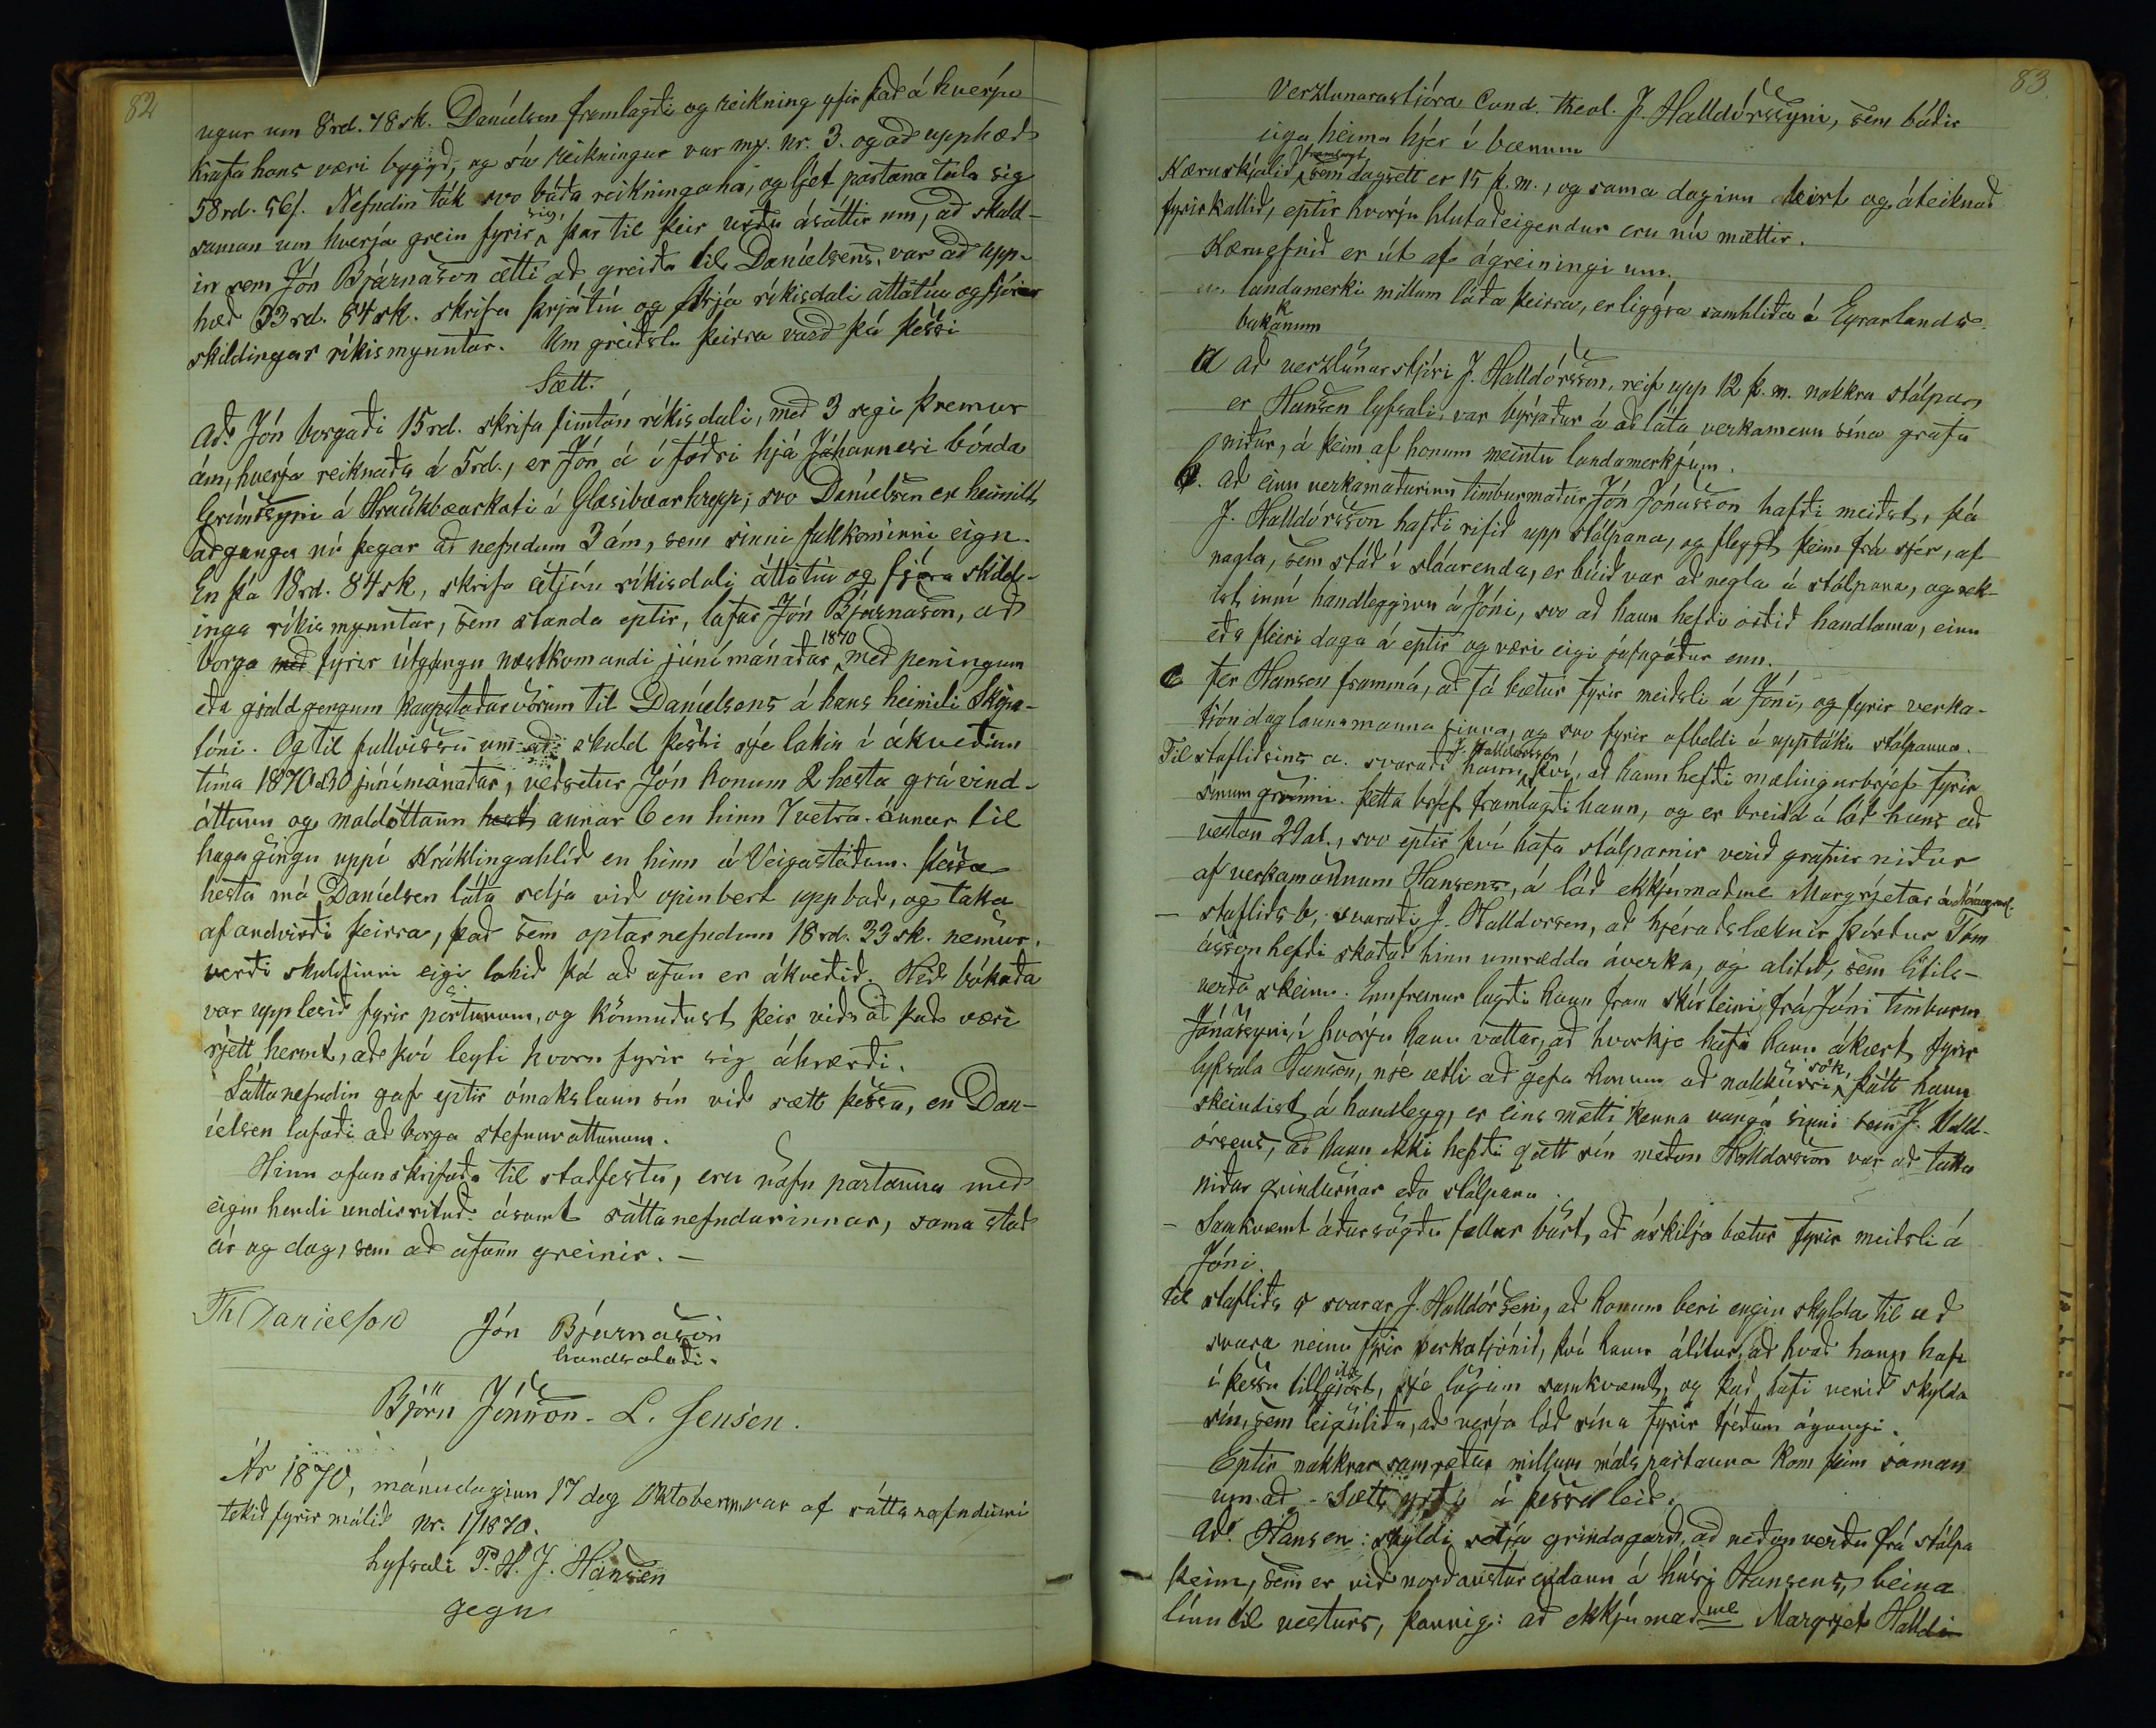 82
ugur um 8rd. 78sk. Daníelsen framlagði og reikning yfir það á hverju
krafa hans væri byggð, og sá reikningur var mrk. Nr. 3. og að upphæð
58rd. 56s. Nefndin tók svo báða reikningana, og ljet partana tala sig
saman um hverja grein fyrir sig, þar til þeir urðu ásáttir um, að skuld-
in sem Jón Bjarnason ætti að greiða til Daníelsens, var að upp-
hæð 33rd. 84sk. skrifa þrjátíu og þrjá ríkisdali áttatíu og fjórir
skildingar ríkismyntar. Um greiðslu þeirra varð þá þessi
Sætt.
Að Jón borgaði 15rd. skrifa fimtán ríkisdali, með 3 segi þremur
ám, hverja reiknaða á 5rd., er Jón á í fóðri hjá Jóhannesi bónda
Grímssyni á Hraukbæarkoti í Glæsibæarhrepp; svo Daníelsen er heimilt
aðganga nú þegar að nefndum 3 ám, sem sinni fullkominni eign.
En þá 18rd. 84sk, skrifa átján ríkisdali áttatíu og fjóra skild-
inga ríkismyntar, sem standa eptir, lofar Jón Bjarnason, að
borga með fyrir útgöngu næstkomandi júnímánaðar 1870 með peningum
eða gjaldgengum kaupstaðarvörum til Daníelsens á hans heimili Skipa-
lóni. Og til fullvissu um að skuld þessi sje lokin í ákveðinn
tíma 1870 d. 30 júnímánaðar, veðsetur Jón honum 2 hesta grávind-
óttann og moldóttann hest annar 6 en hinn 7 vetra. Annar til
hagagöngu uppí Kræklingahlíð en hinn á Veigastöðum. Þessa
hesta má Daníelsen láta selja við opinbert uppboð, og taka
af andvirði þeirra, það sem optarnefndum 18rd. 33sk. nemur,
verði skuldinni eigi lokið þá að ofan er ákveðið. Hið bókaða
var upplesið fyrir pörtunum, og könnuðust þeir við að það væri
rjett hermt, að því leyti hvern fyrir sig áhrærði.
Sáttanefndin gaf eptir ómakslaun sín við sætt þessa, en Dan-
íelsen lofaði að borga stefnuvottunum.
Hinu ofanskrifaða til staðfestu, eru nöfn partanna með
eigin hendi undirrituð ásamt sáttanefndarinnar, sama stað
ár og dag, sem að ofann greinir. –
Th Danielsen Jón Bjarnason
handsalaði.
Björn Jónsson. L. Jensen.
Ár 1870, mánudaginn 17 dag Oktober m. var af sáttanefndinni
tekið fyrir málið Nr. 1/1870.
lyfsali P. H. J. Hansen
gegn
83.
Verzlunarastjóra Cand. theol. J. Halldórssyni, sem báðir
eiga heima hjer í bænum
Kæruskjalið framlagt sem dagsett er 15 þ. m., og sama daginn birt og áteiknað
fyrirkallið, eptir hvorju hlutaðeigendur eru nú mættir.
Kæruefnið er út af ágreiningi um.
landamerki millum lóða þeirra, er liggja samhliða á Eyrarlands
bakkanum
a að verzlunarstjóri J. Halldórsson, reif upp 12 þ. m. nokkra stólpa,
er Hansen lyfsali var byrjaður á að láta verkamenn sína grafa
niður, á þeim af honum meintu landamerkjum.
b. að einn verkamaðurinn timburmaður Jón Jónasson hafði meiðst, þá
J. Halldórsson hafði rifið upp stólpana, og fleygt þeim frá sjer, af
nagla, sem stóð í sláarenda, er búið var að negla á stólpana, og rek-
ist inní handlegginn á Jóni, svo að hann hefði orðið handlama, einn
eða fleiri daga á eptir og væri eigi jafngóður enn.
c fer Hansen frammá, að fá bætur fyrir meiðsli á Jóni, og fyrir verka-
tjón daglaunamanna sinna, og svo fyrir ofbeldi á upptöku stólpanna.
Til stafliðsins a. svaraði hann J. Halldórsson því, að hann hefði mælingarbrjef fyrir
sínum grunni. þetta brjef framlagði hann, og er breidd á lóð hans að
vestan 29al., svo eptir því hafa stólparnir verið grafnir niður
af verkamönnum Hansens, á lóð ekkjumadme Margrjetar
– stafliðs b, svaraði J. Halldorsen, að hjéraðslæknir Þórður Tóm
ásson hefði skoðað hinn umrædda áverka, og álitið, sem lítils-
verða skeinu. Ennfremur lagði hann fram skírteini frá Jóni timburm.
Jónássyni, í hvorju hann vottar, að hvorki hafi hann ákært fyrir
lyfsala Hansen, nje ætli að gefa honum að nokkurri sök, þótt hann
skeindist á handlegg, er eins mætti kenna vangá sinni sem J. Halld-
órsens, að hann ekki hefði gætt sín meðan Halldorsson var að taka
niður grindurnar eða stólpana.
– Samkvæmt áðursögðu fellur burt, að áskilja bætur fyrir meiðsli á
Jóni.
til stafliðs c svarar J. Halldórsen, að honum beri engin skylda til að
svara neinu fyrir verkatjónið, því hann álítur, að hvað hann hafi
í þessu tilliti gjört, sje lögum samkvæmt, og það hafi verið skylda
sín, sem leiguliða, að verja lóð sína fyrir tjeðum ágangi.
Eptir nokkrar samræður millum málspartanna kom þeim saman
um að Sætt yrði á þessa leið.
Að Hansen: skyldi setja grindagarð, að neðan verðu frá stólpa
þeim, sem er við norðaustur endann á húsi Hansens, beina
línu til vesturs, þannig: að ekkjumadme Margrjet Halld